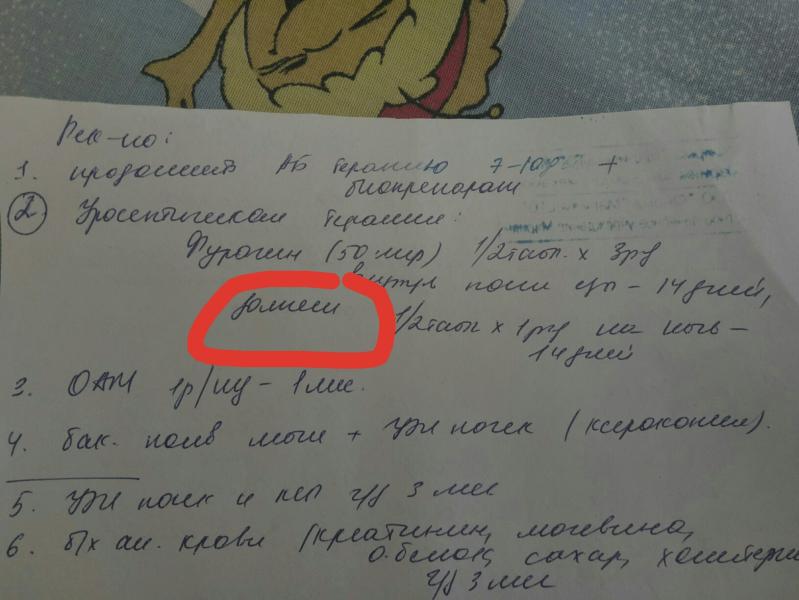 Рек-но:
1. продолжить АБ терапию 7-10 дн +
биопрепараты
2. Уросептическая терапия:
Фурагин (50 мгр) 1/2 табл. х 3рд
внутрь после еды - 14 дней,
далее 1/2 табл х 1рд на ночь -
14 дней
3. ОАМ 1р/нд - 1 мес.
4. бак. посев мочи + УЗИ почек (ксерокопии).
5. УЗИ почек и МП ч/з 3 мес
6. б/х ан. крови (креатинин, мочевина,
о.белок, сахар,
ч/з 3 мес